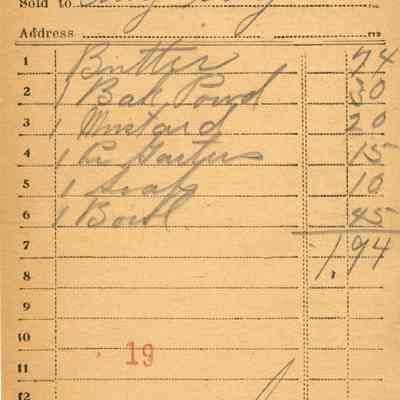 Sold to
Address
1 Butter 74
2 1 Bak Powd 30
3 1 Mustard 20
4 1 Pr Garters 15
5 1 Soap 10
6 1 Bowl 45
7 1.94
8
9
10
19
11
12